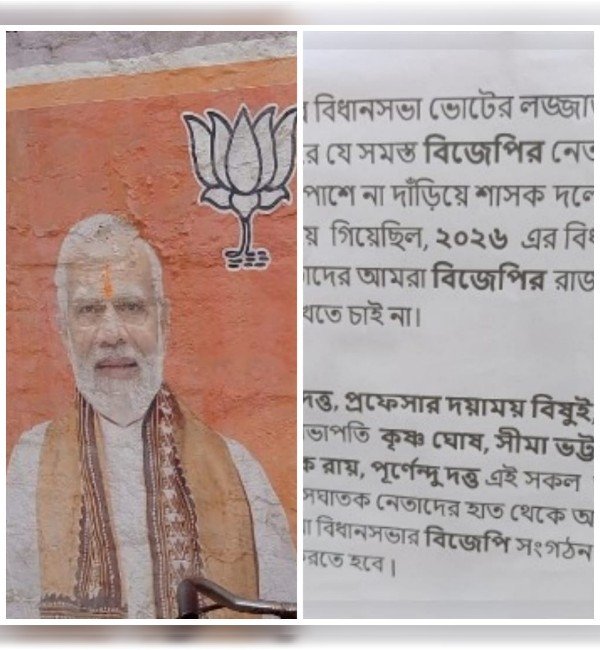 বিধানসভা ভোটের লজ্জা
র যে সমস্ত বিজেপির নেত
পাশে না দাঁড়িয়ে শাসক দলে
য় গিয়েছিল, ২০২৬ এর বি
াদের আমরা বিজেপির রাজ
খতে চাই না।
দত্ত, প্রফেসার দয়াময় বিষুই,
ভাপতি কৃষ্ণ ঘোষ, সীমা ভট্ট
ক রায়, পূর্ণেন্দু দত্ত এই সকল
সঘাতক নেতাদের হাত থেকে
া বিধানসভার বিজেপি সংগঠন
রতে হবে।